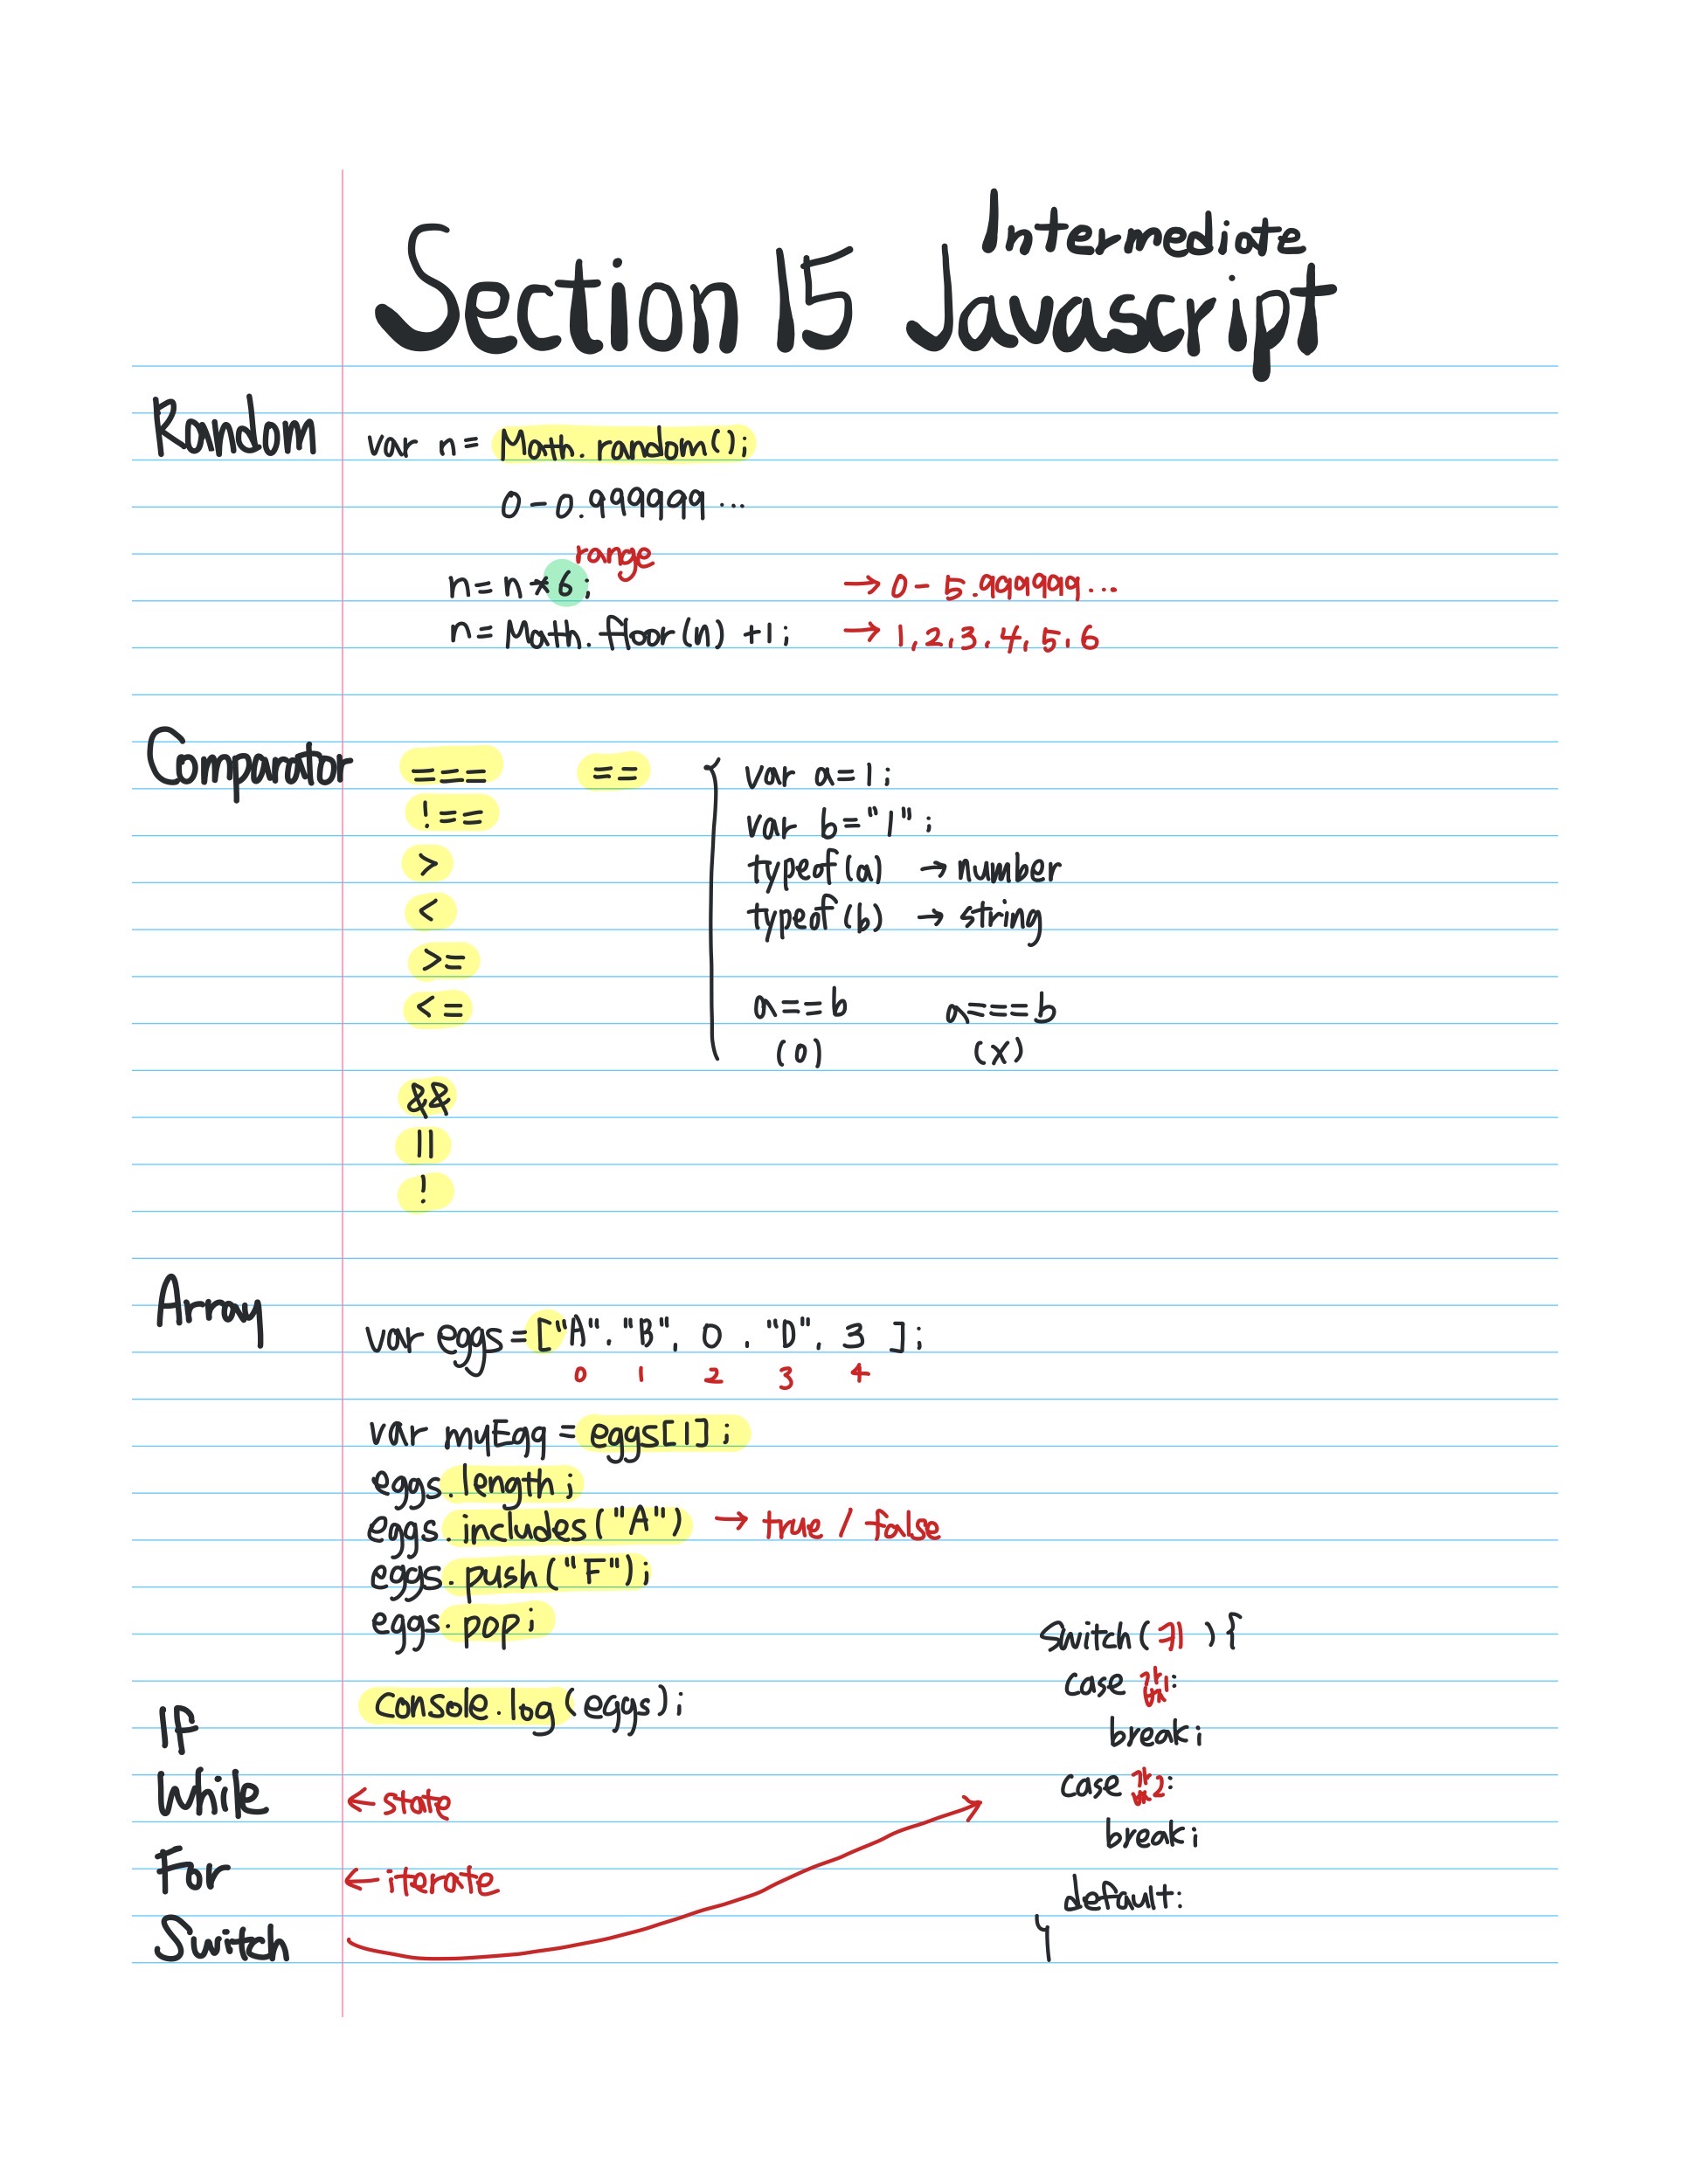 Section 15 Intermediate Javascript
Random
var n = Math.random();
0 - 0.999999...
range
n = n * 6; → 0 - 5.999999...
n = Math.floor(n) +1; → 1, 2, 3, 4, 5, 6
Comparator
=== ==
!==
>
<
>=
<=
&&
||
!
var a=1;
var b="1";
typeof(a) → number
typeof(b) → string
a==b a===b
(O) (X)
Array
var eggs = ["A", "B", 0, "D", 3 ];
0 1 2 3 4
var myEgg = eggs[1];
eggs.length;
eggs.includes("A") → true / false
eggs.push("F");
eggs.pop;
console.log(eggs);
If
While ← state
For ← iterate
Switch
switch(키) {
case 값1:
break;
case 값2:
break;
default:
}